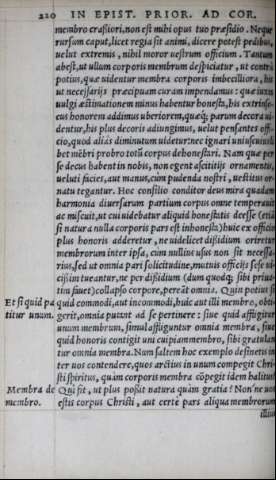 220 IN EPIST. PRIOR. AD COR.
membro crassiori, non est mihi opus tuo præsidio. Neque
rursum caput, licet regia sit animi, dicere potest pedibus,
uelut extremis, nihil moror uestrum officium. Tantum
abest, ut ullum corporis membrum despiciatur, ut contra
potius, quæ uidentur membra corporis imbecilliora, his
ut necessarijs præcipuam curam impendamus: quæ iuxta
uulgi æstimationem minus habentur honesta, his extrinse-
cus honorem addimus uberiorem, quæq; parum decora ui-
dentur, his plus decoris adiungimus, uelut pensantes offi-
cio, quod aliàs diminutum uidetur: nec ignari uniuscuiuslibet
membri probro toti corpus dehonestari. Nam quæ per
se decus habent in nobis, non egent ascititijs ornamentis,
ueluti facies, aut manus, cum pudenda nostri, uestitu or-
natu tegantur. Hoc consilio conditor deus mira quadam
harmonia diuersarum partium corpus omne temperauit
ac miscuit, ut cui uidebatur aliquid honestatis deesse (etiã
si natura nulla corporis pars est inhonesta) huic ex officio
plus honoris adderetur, ne uidelicet dissidium oriretur
membrorum inter ipsa, cum nullius usus non sit necessa-
rius, sed ut omnia pari solicitudine, mutuis officijs sese ui-
cissim tueantur, ne per dissidium (dum quodq; sibi priua-
tim fauet) collapso corpore, pereãt omnia. Quin potius si
Et si quid pa- quid commodi, aut incommodi, huic aut illi membro, obti-
titur unum. gerit, omnia putant ad se pertinere: siue quid affligitur
unum membrum, simul affliguntur omnia membra, siue
quid honoris contigit uni cuipiam membro, sibi gratulan-
tur omnia membra. Num saltem hoc exemplo desinetis in
ter uos contendere, quos arctius in unum compegit Chri-
sti spiritus, quàm corporis membra cõpegit idem halitus?
Membra de Qui fit, ut plus possit natura quàm gratia? Non'ne uos
membro. estis corpus Christi, aut certe pars aliqua membrorum
illius